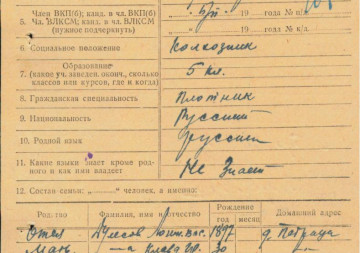 Член ВКП(б); канд. в чл. ВКП(б) б/п 19 года № п/б
5. Чл. ВЛКСМ; канд. в чл. ВЛКСМ
(нужное подчеркнуть) 19 года № к/б.
6. Социальное положение Колхозник
Образование
7. (какое уч. заведен. оконч., сколько 5 кл.
классов или курсов, где и когда)
8. Гражданская специальность Плотник
9. Национальность Русский
10. Родной язык русский
11. Какие языки знает кроме род-
ного и как ими владеет Не знает
12. Состав семьи: „ “ человек, а именно:
Родство Фамилия, имя и отчество Рождение год месяц Домашний адрес
Отец 1897 д.
Мать —„— 30 —„—